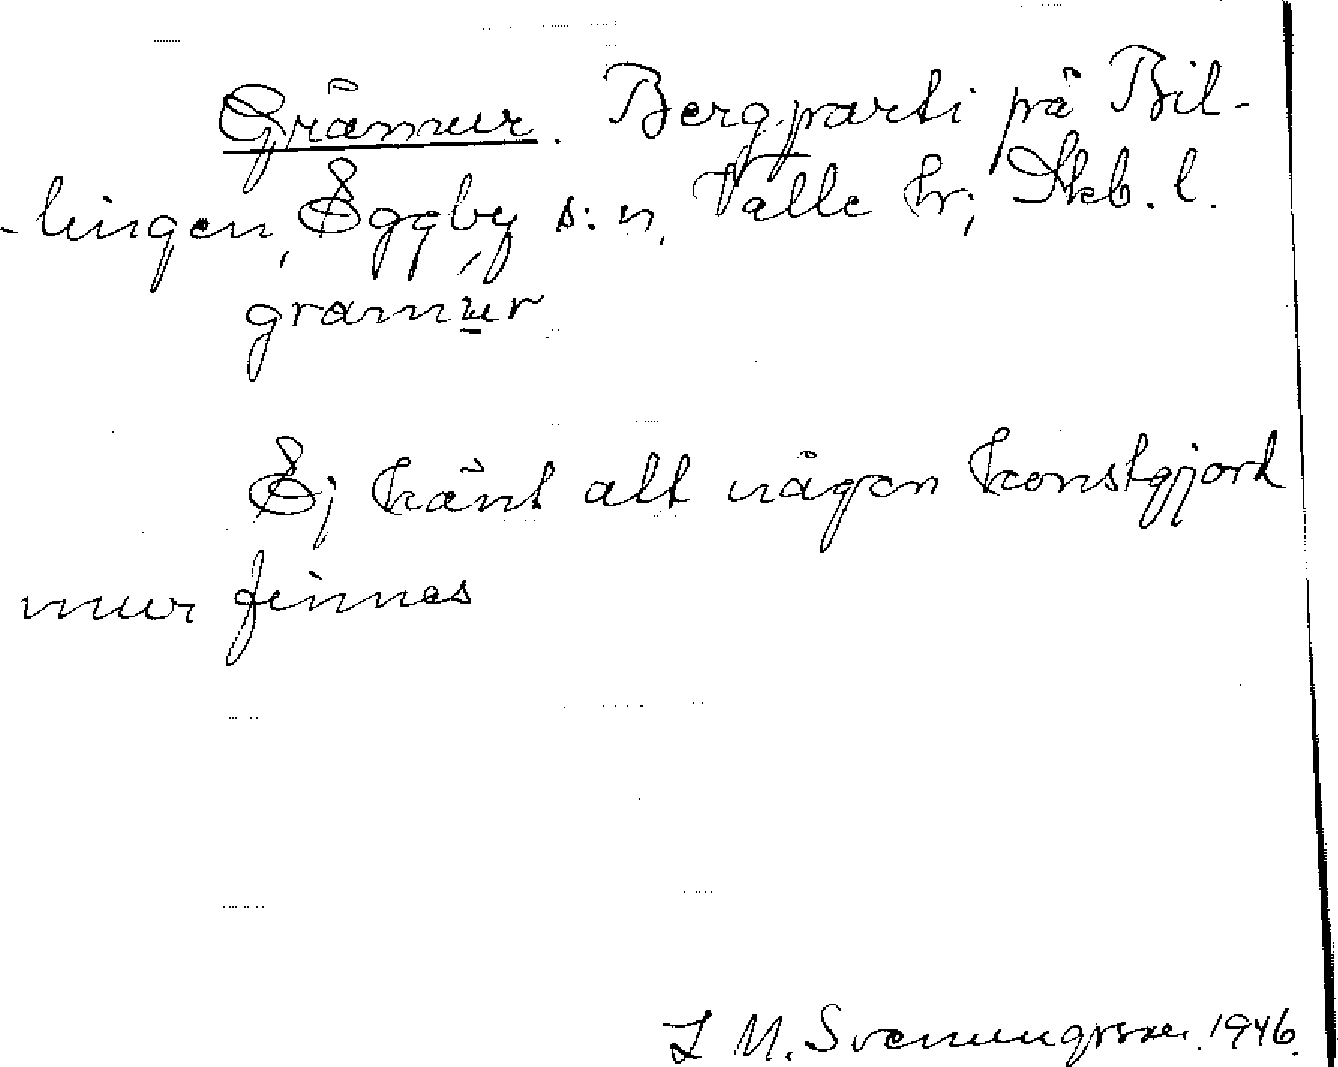 Gråmur. Bergparti på Bil-
-lingen, Eggby s:n, Valle hr; Skb. l.
gramur
Ej känt att någon konstgjord
mur finnes
L M. Svenungsson. 1946.